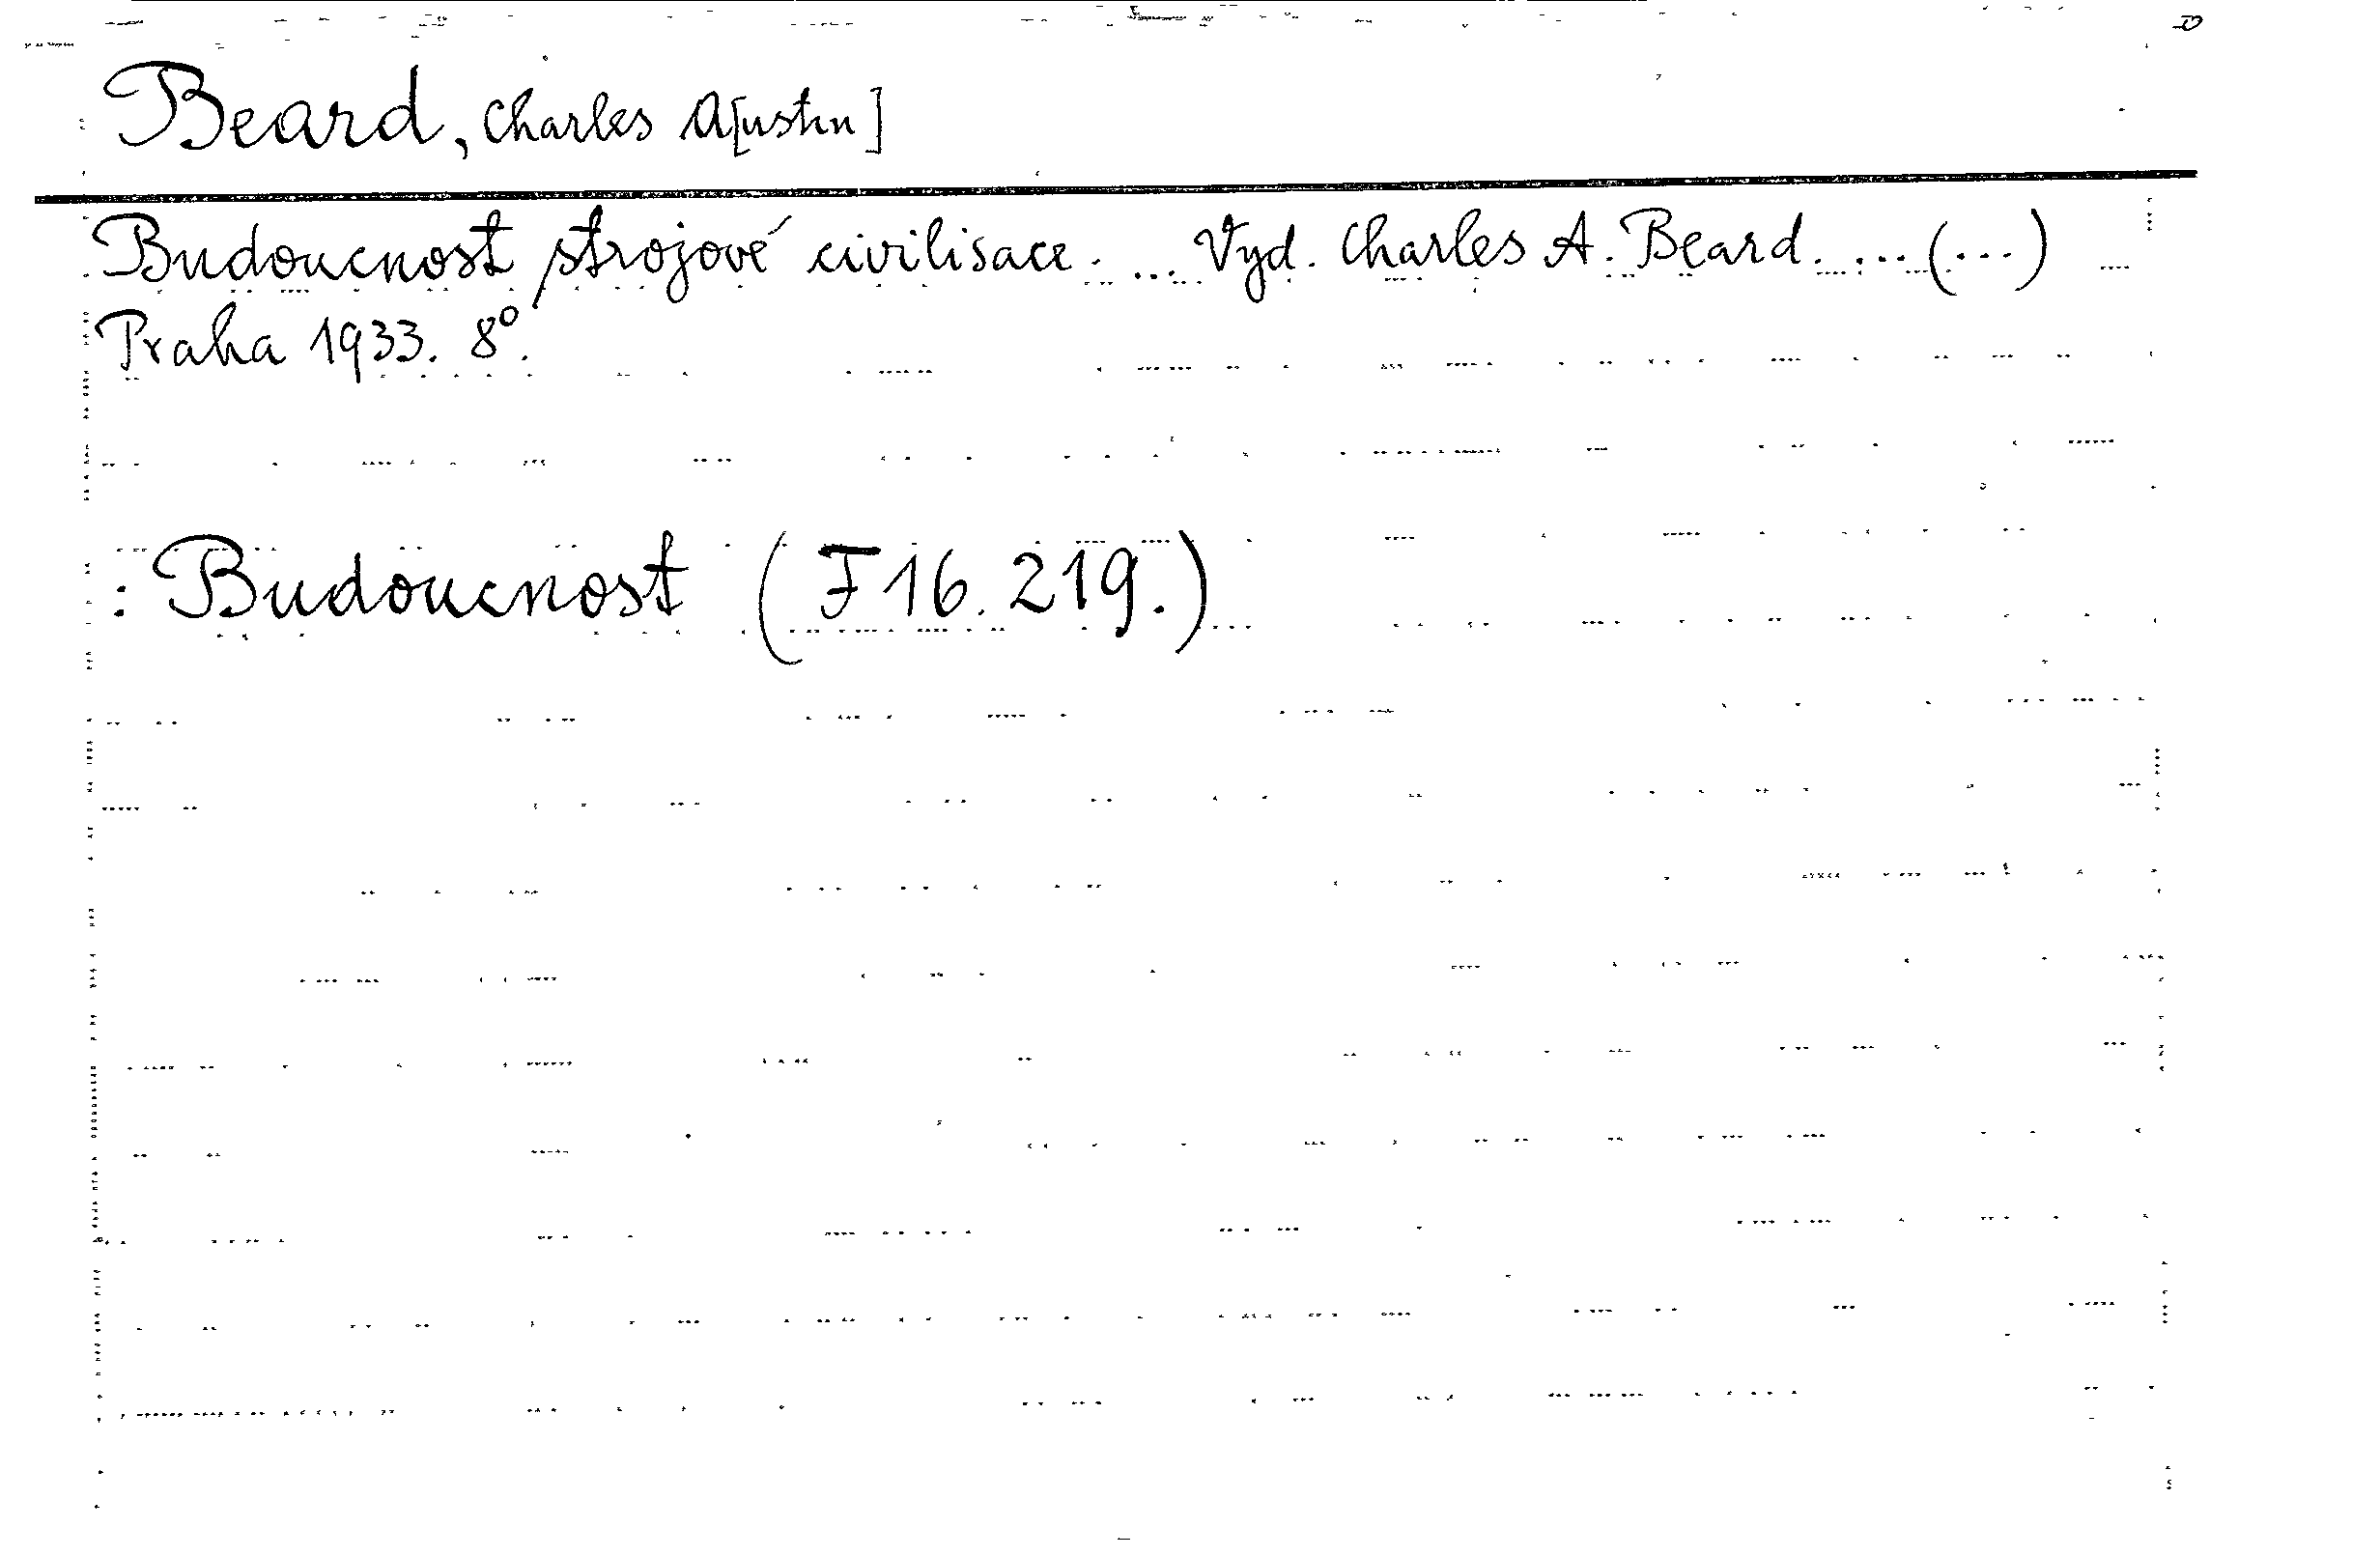 Beard, Charles A[ustin]
Budoucnost strojové civilisace. ... Vyd. Charles A. Beard. ... (...)
Praha 1933. 8°.
: Budoucnost (F 16. 219.)